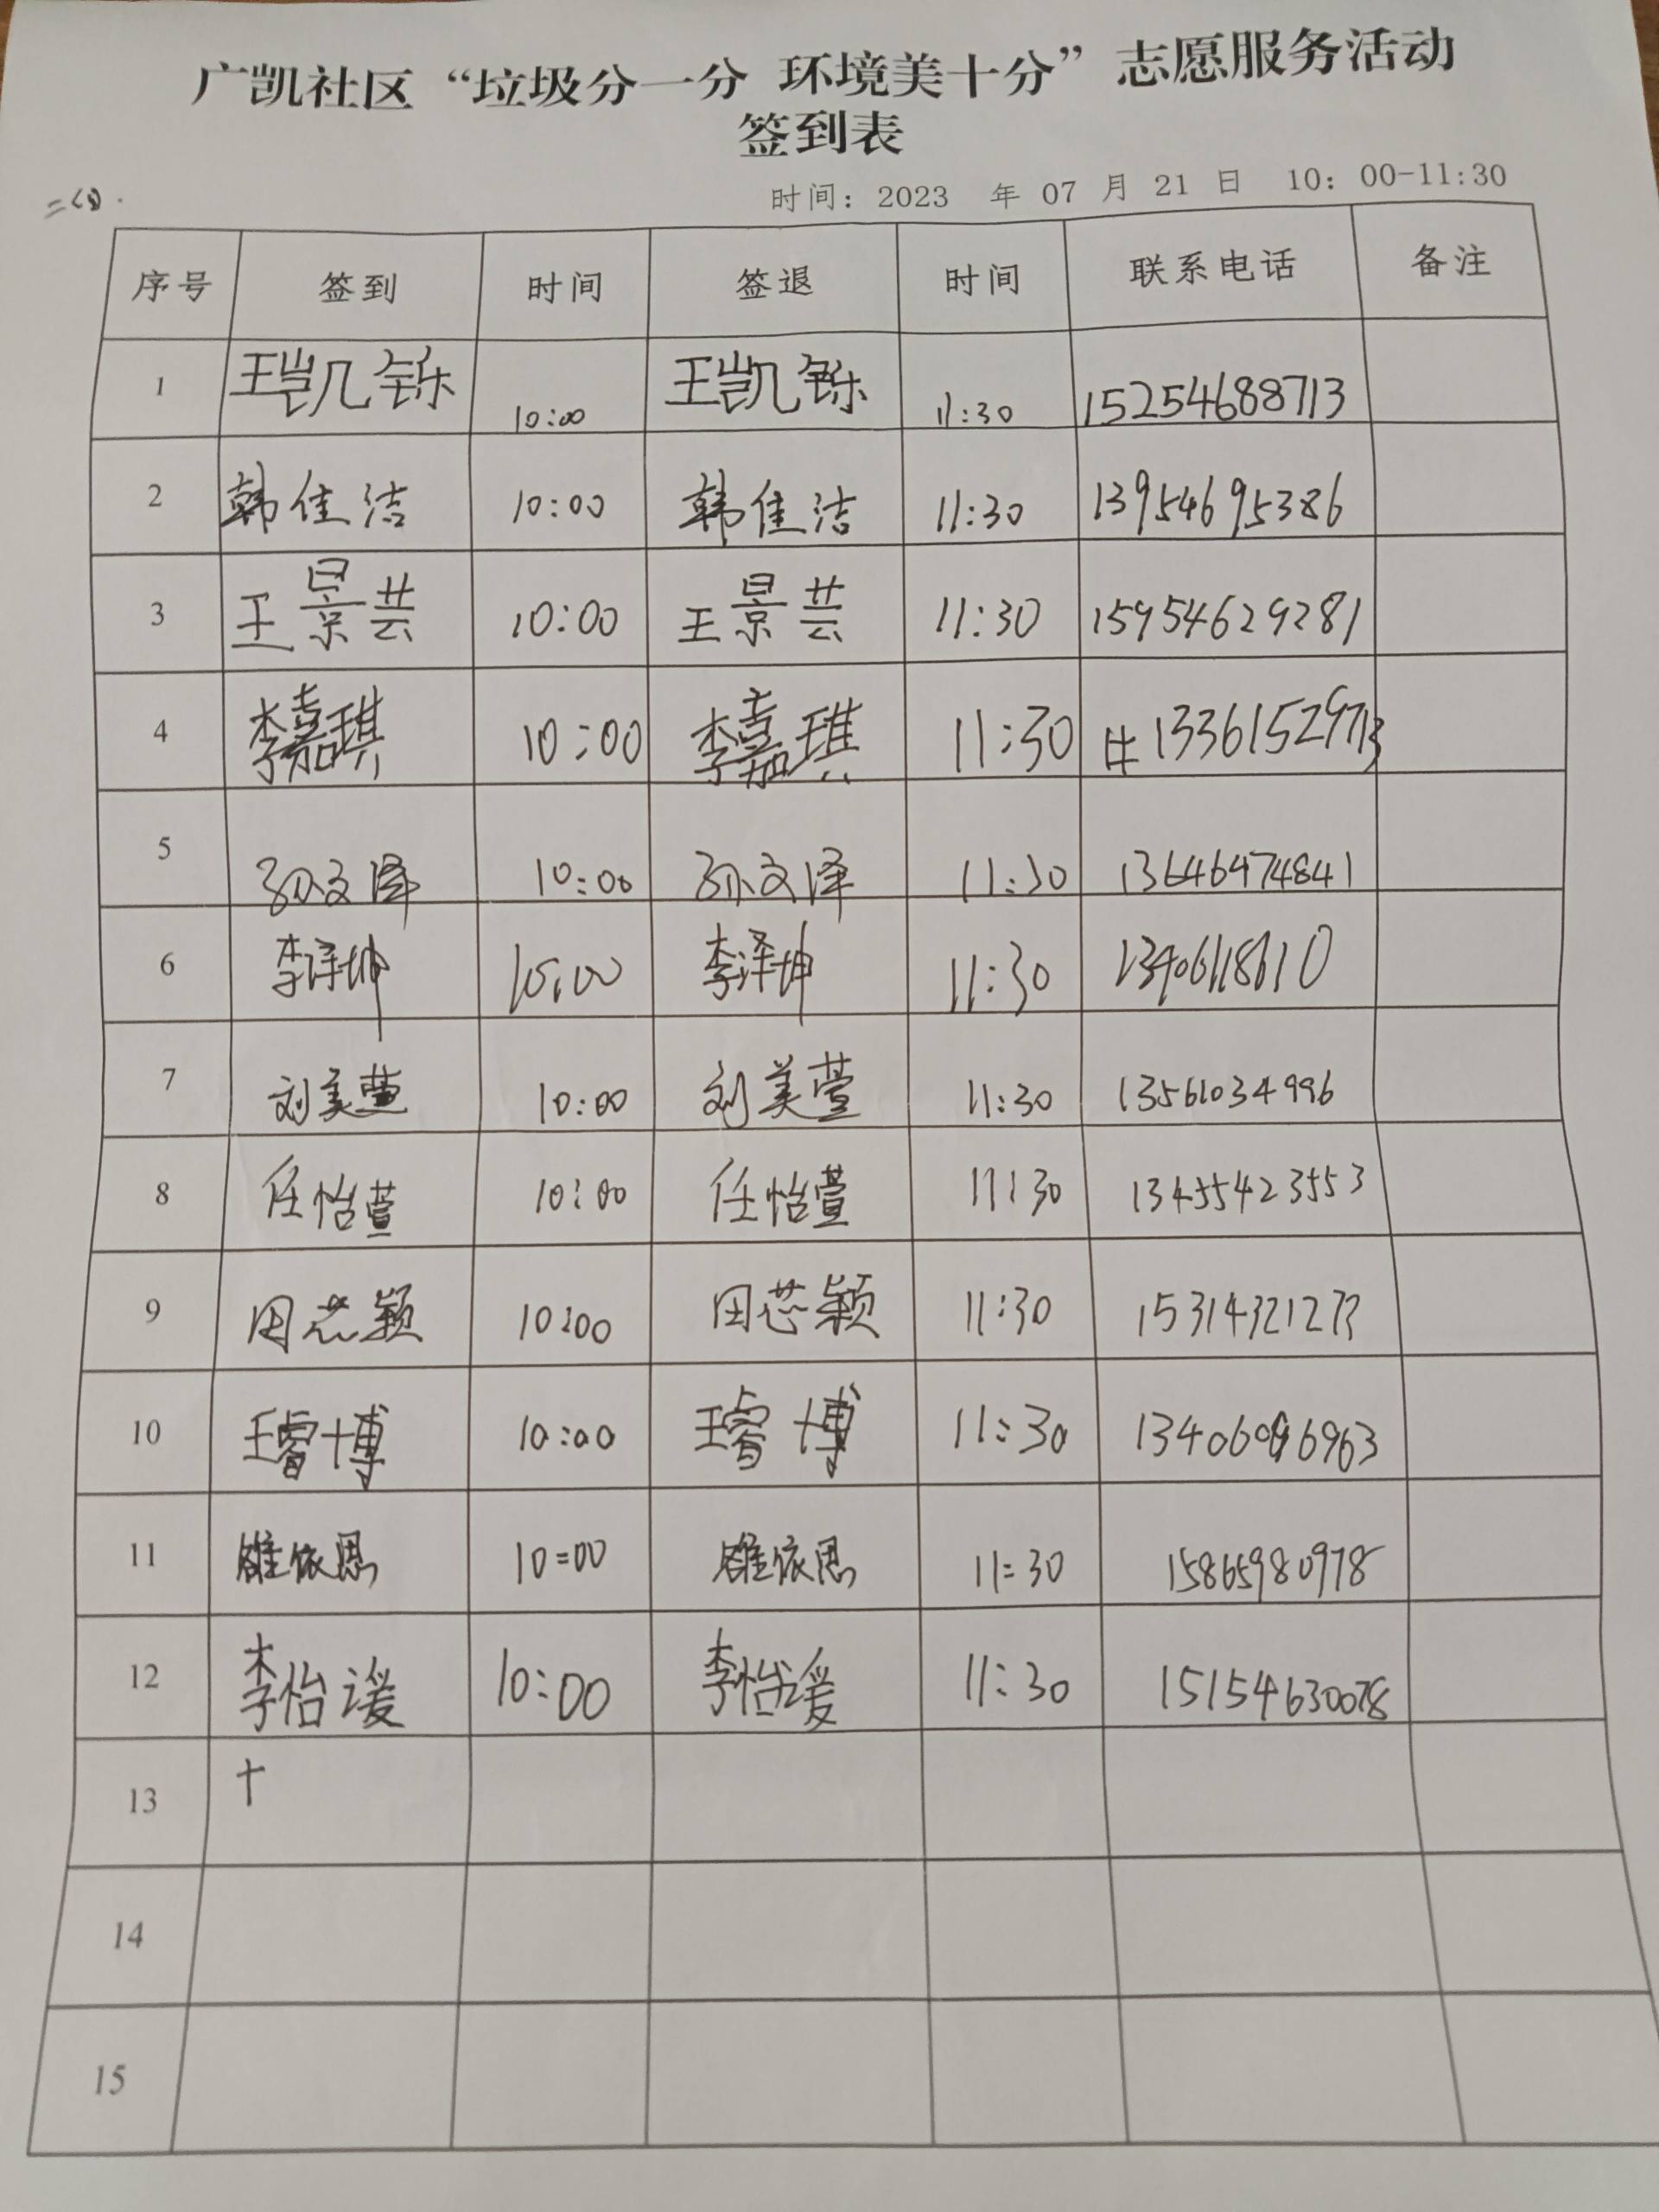 广凯社区“垃圾分一分 环境美十分”志愿服务活动
签到表
时间：2023 年 07 月 21 日 10：00-11:30
序号 签到 时间 签退 时间 联系电话 备注
1 王凯铄 10:00 王凯铄 11:30 15254688713
2 韩佳洁 10:00 韩佳洁 11:30 13954695386
3 王景芸 10:00 王景芸 11:30 15954629281
4 李嘉琪 10:00 李嘉琪 11:30 13361529713
5 孙文泽 10:00 孙文泽 11:30 13646474841
6 李泽坤 10:00 李泽坤 11:30 13406118610
7 刘美萱 10:00 刘美萱 11:30 13561034996
8 任怡萱 10:00 任怡萱 11:30 13455423553
9 田芯颖 10:00 田芯颖 11:30 15314321273
10 王睿博 10:00 王睿博 11:30
11 依思 10=00 依思 11=30 15865980978
12 李怡谖 10:00 李怡谖 11:30 15154630078
13 十
14
15